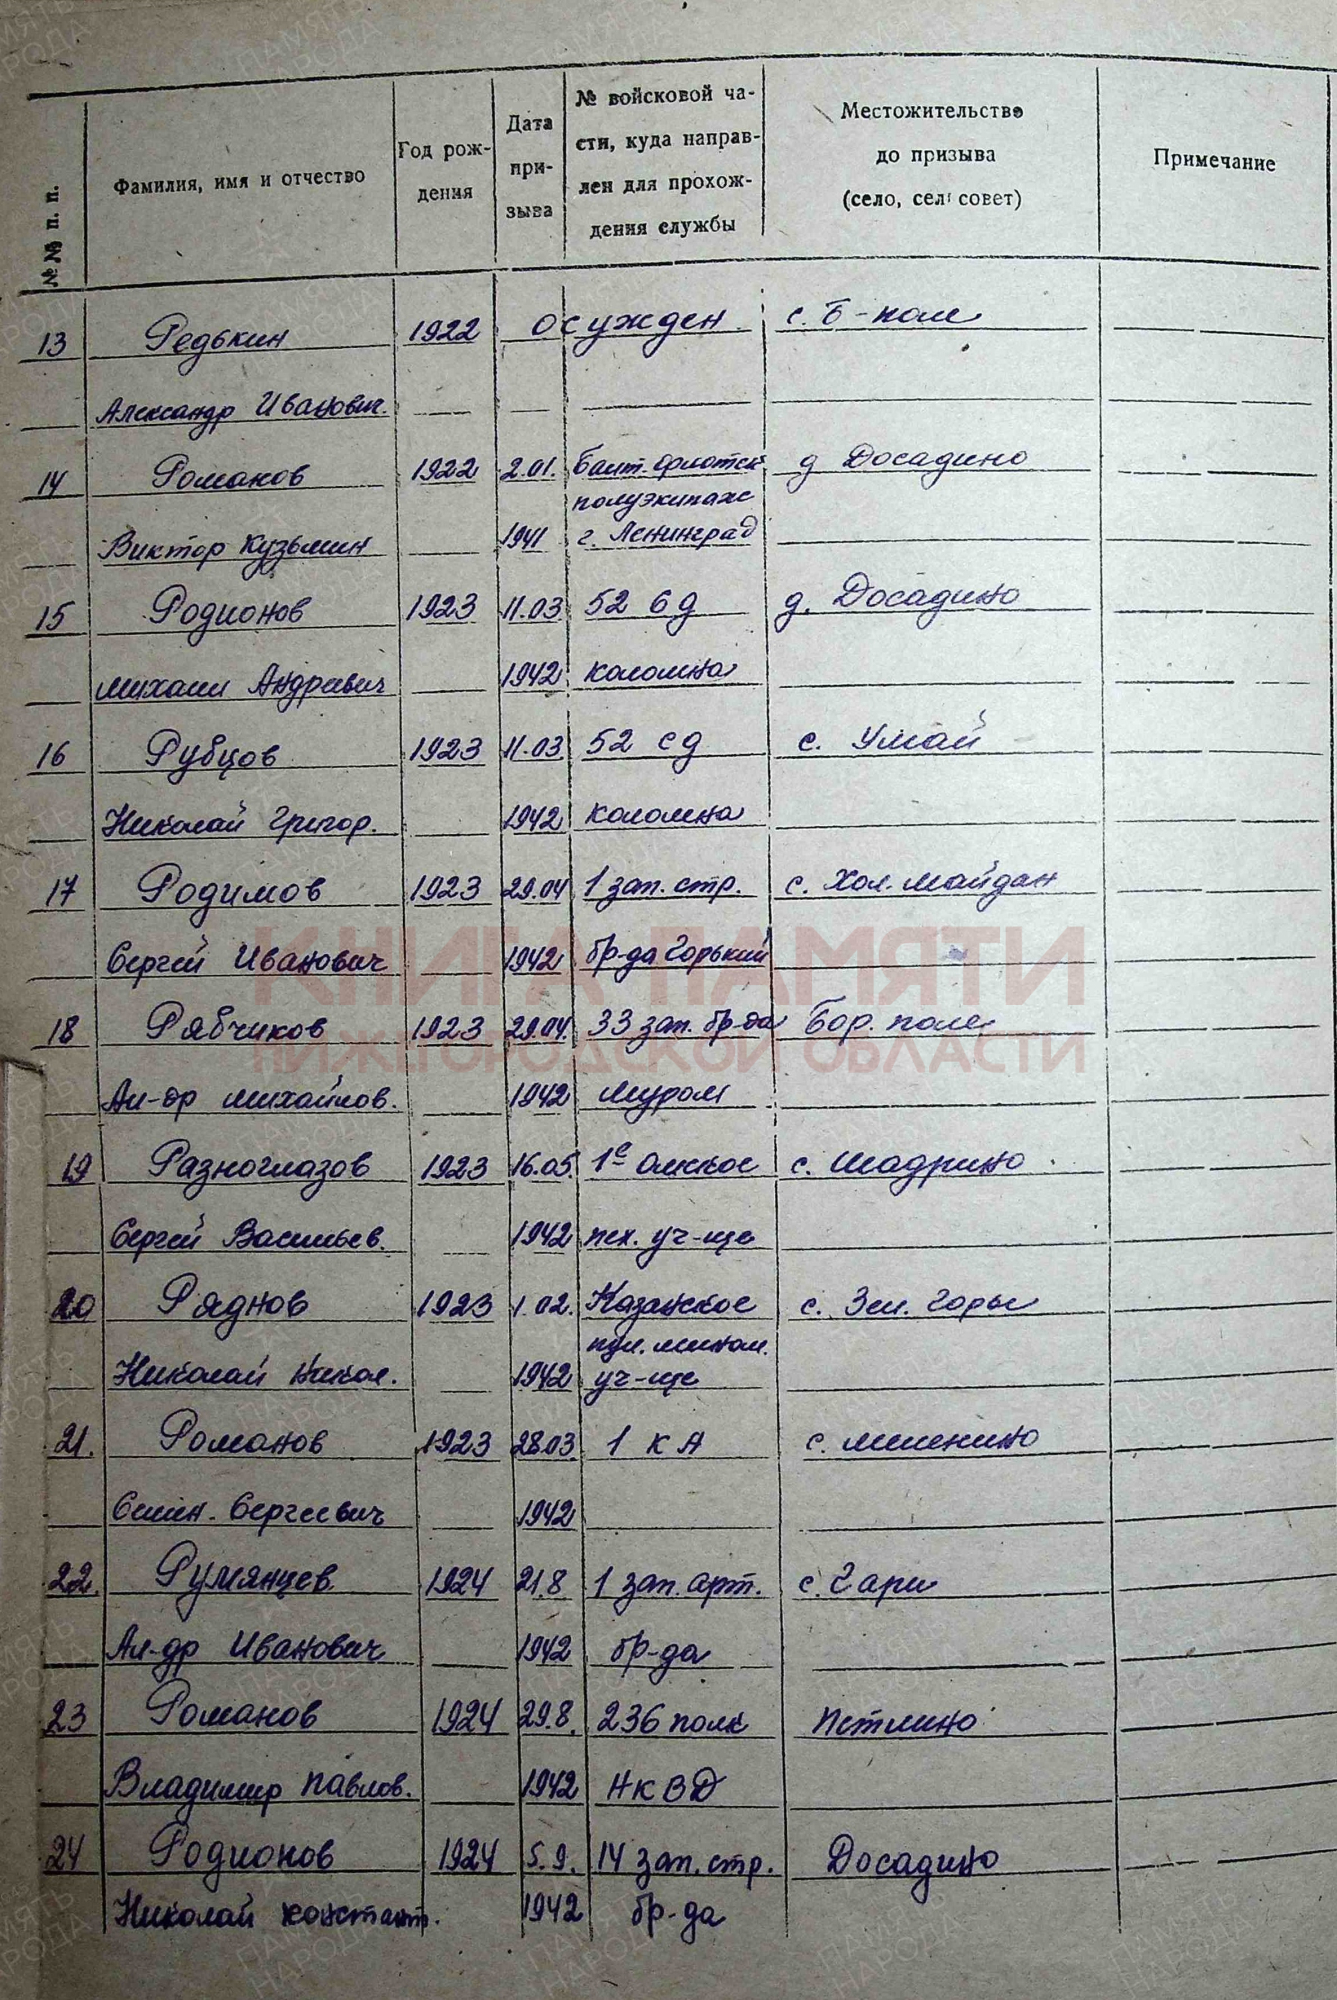 №№ п. п.
Фамилия, имя и отчество
Год рож-
дения
Дата
при-
зыва
№ войсковой ча-
сти, куда направ-
лен для прохож-
дения службы
Местожительство
до призыва
(село, сел совет)
Примечание
13 Редькин 1922 осужден с. Б-поле
Александр Иванович.
14 Романов 1922 2.01. Балт. флотск
полуэкипаже
Виктор Кузьмин 1941 г. Ленинград
д Досадино
15 Родионов 1923 11.03 52 бд д. Досадино
Михаил Андреевич 1942 Коломна
16 Рубцов 1923 11.03 52 сд с. Умай
Николай Григор. 1942 Коломна
17 Родимов 1923 29.04 1 зап. стр. с. Хол. Майдан
Сергей Иванович 1942 бр-да Горький
18 Рябчиков 1923 29.04. 33 зап. бр-да Бор. поле
Ал-др Михайлов. 1942 Муром
19 Разноглазов 1923 16.05. 1е Омское с. Шадрино
Сергей Васильев. 1942 пех. уч-ще
20 Ряднов 1923 1.02. Казанское с. Зел. Горы
пул. мином.
Николай Никол. 1942 уч-ще
21. Романов 1923 28.03. 1 КА с.
Семен. Сергеевич 1942
22. Румянцев 1924 21.8 1 зап. арт. с. Гари
Ал-др Иванович 1942 бр-да
23 Романов 1924 29.8. 236 полк Петлино
Владимир Павлов. 1942 НКВД
24 Родионов 1924 5.9. 14 зап. стр. Досадино
Николай Констант. 1942 бр-да
КНИГА ПАМЯТИ
НИЖЕГОРОДСКОЙ ОБЛАСТИ
ПАМЯТЬ
НАРОДА